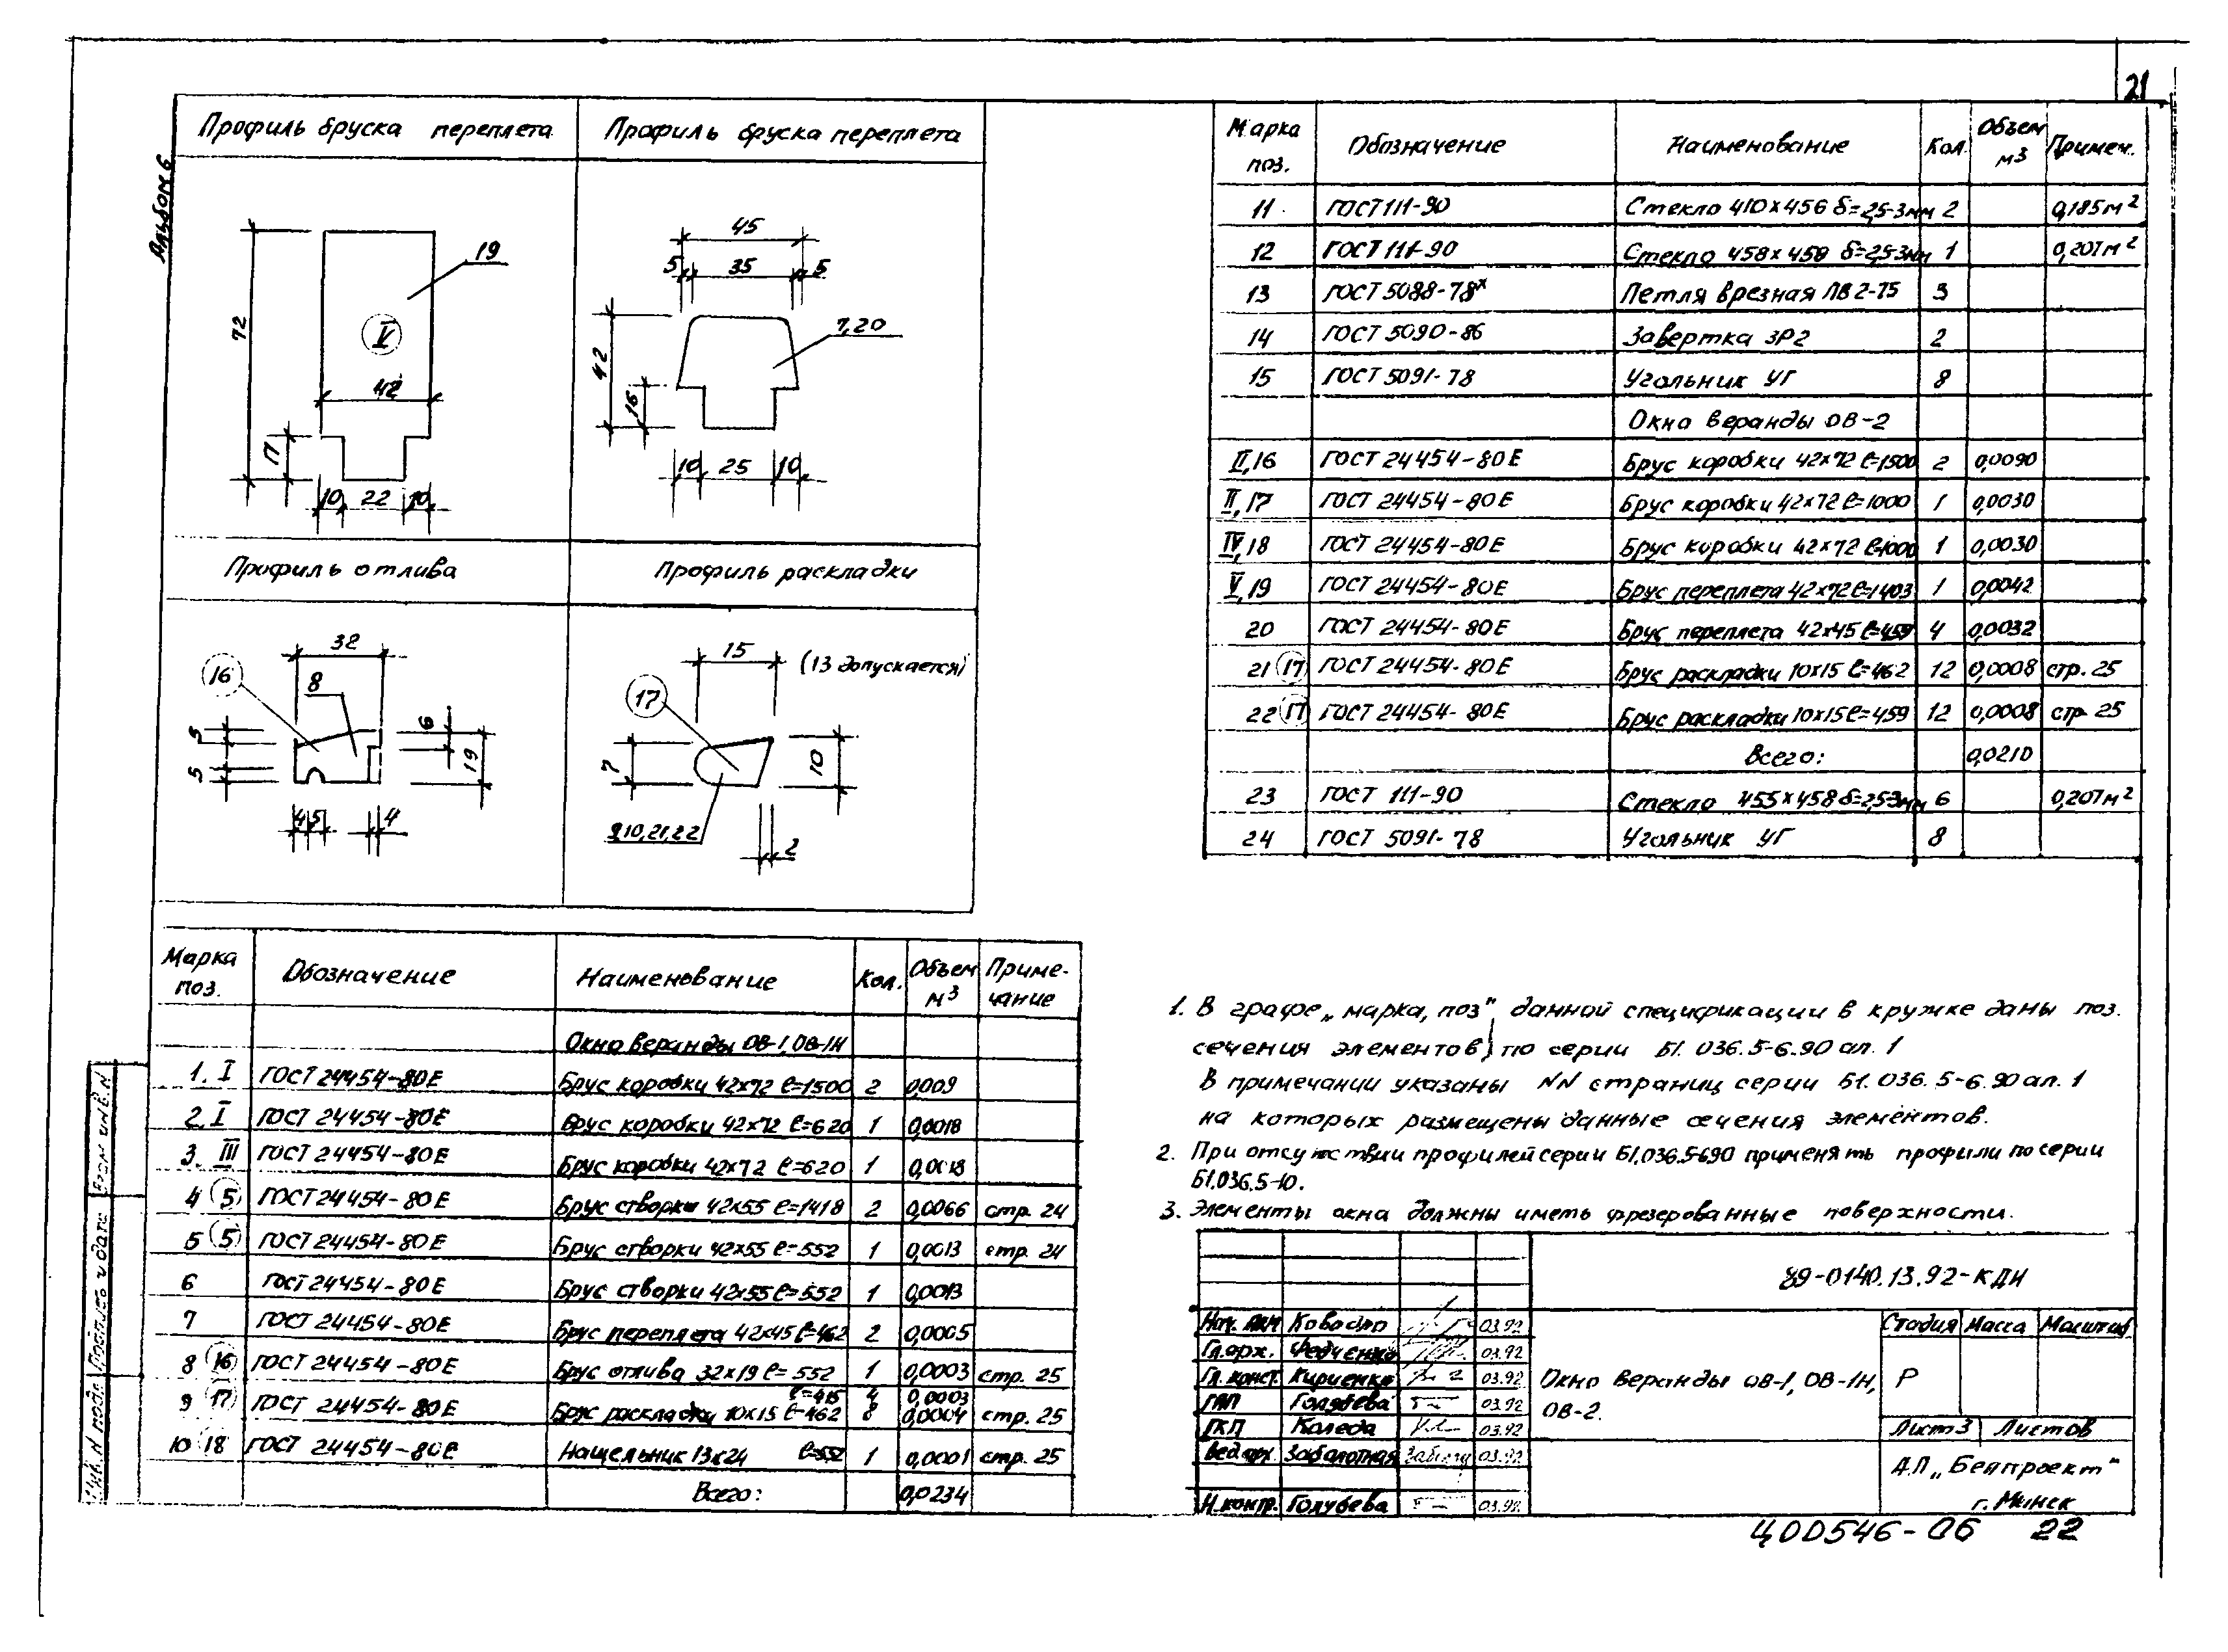 21
Альбом 6
Профиль бруска переплета
Профиль бруска переплета
72
19
V
42
17
10 22 10
45
5 35 5
42
16
7,20
10 25 10
Профиль отлива
Профиль раскладки
32
16
8
5
5
6
19
4 5 4
15 (13 допускается)
17
7
10
9,10,21,22
2
Марка поз. Обозначение Наименование Кол. Объем м3 Примечание
Окно веранды ОВ-1, ОВ-1Н
1. I ГОСТ 24454-80Е Брус коробки 42×72 ℓ=1500 2 0,009
2. I ГОСТ 24454-80Е Брус коробки 42×72 ℓ=620 1 0,0018
3. III ГОСТ 24454-80Е Брус коробки 42×72 ℓ=620 1 0,0018
4 (5) ГОСТ 24454-80Е Брус створки 42×55 ℓ=1418 2 0,0066 стр. 24
5 (5) ГОСТ 24454-80Е Брус створки 42×55 ℓ=552 1 0,0013 стр. 24
6 ГОСТ 24454-80Е Брус створки 42×55 ℓ=552 1 0,0013
7 ГОСТ 24454-80Е Брус переплета 42×45 ℓ=462 2 0,0005
8 (16) ГОСТ 24454-80Е Брус отлива 32×19 ℓ=552 1 0,0003 стр. 25
ℓ=415 4 0,0003
9 (17) ГОСТ 24454-80Е Брус раскладки 10×15 ℓ=462 8 0,0004 стр. 25
10 (18) ГОСТ 24454-80Е Нащельник 13×24 ℓ=552 1 0,0001 стр. 25
Всего: 0,0234
Марка поз. Обозначение Наименование Кол. Объем м3 Примеч.
11 ГОСТ 111-90 Стекло 410×456 δ=2,5-3мм 2 0,185м2
12 ГОСТ 111-90 Стекло 458×458 δ=2,5-3мм 1 0,207м2
13 ГОСТ 5088-78х Петля врезная ПВ2-75 3
14 ГОСТ 5090-86 Завертка ЗР2 2
15 ГОСТ 5091-78 Угольник УГ 8
Окно веранды ОВ-2
II,16 ГОСТ 24454-80Е Брус коробки 42×72 ℓ=1500 2 0,0090
II,17 ГОСТ 24454-80Е Брус коробки 42×72 ℓ=1000 1 0,0030
IV,18 ГОСТ 24454-80Е Брус коробки 42×72 ℓ=1000 1 0,0030
V,19 ГОСТ 24454-80Е Брус переплета 42×72 ℓ=1403 1 0,0042
20 ГОСТ 24454-80Е Брус переплета 42×45 ℓ=459 4 0,0032
21 (17) ГОСТ 24454-80Е Брус раскладки 10×15 ℓ=462 12 0,0008 стр. 25
22 (17) ГОСТ 24454-80Е Брус раскладки 10×15 ℓ=459 12 0,0008 стр. 25
Всего: 0,0210
23 ГОСТ 111-90 Стекло 455×458 δ=2,5-3мм 6 0,207м2
24 ГОСТ 5091-78 Угольник УГ 8
1. В графе „марка, поз" данной спецификации в кружке даны поз.
сечения элементов по серии Б1.036.5-6.90 ал. 1
В примечании указаны NN страниц серии Б1.036.5-6.90 ал. 1
на которых размещены данные сечения элементов.
2. При отсутствии профилей серии Б1.036.5-6.90 применять профили по серии
Б1.036.5-10.
3. Элементы окна должны иметь фрезерованные поверхности.
89-0140.13.92-КДИ
03.92
Гл.арх. Федченко 03.92
Гл. конст. Кириенко 03.92
ГАП Голубева 03.92
ГКП Каледа 03.92
Вед.арх Заболотная 03.92
Н.контр. Голубева 03.92
Окно веранды ОВ-1, ОВ-1Н,
ОВ-2.
Стадия Масса Масштаб
Р
Лист 3 Листов
А.П „Белпроект"
г. Минск
Инв. N подл. Подпись и дата Взам инв. N
Ц00546-06 22